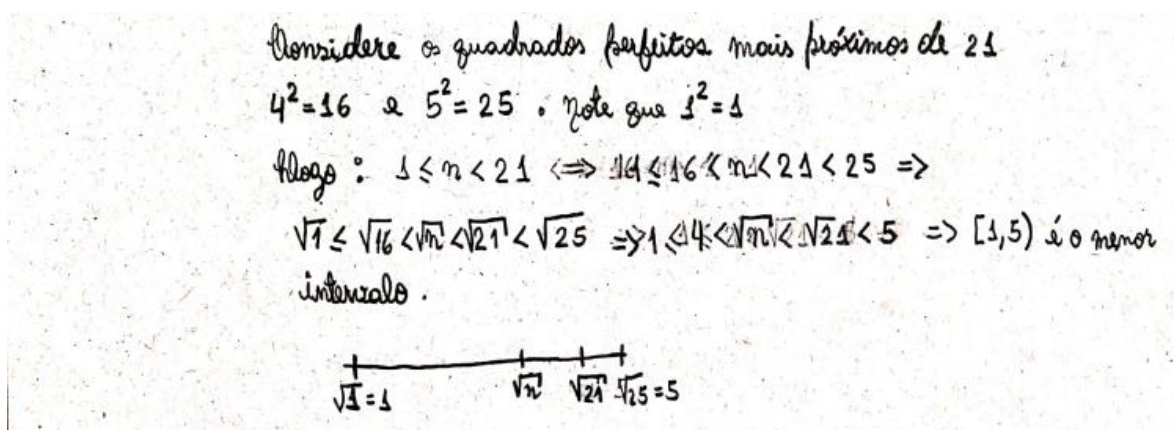 Considere os quadrados perfeitos mais próximos de 21
4² = 16 e 5² = 25 . Note que 1² = 1
Logo : 1 ≤ n < 21 <=> 1 ≤ 16 < n < 21 < 25 =>
√1 ≤ √16 < √n < √21 < √25 => 1 ≤ 4 < √n < √21 < 5 => [1,5) é o menor
intervalo .
√1 = 1 √n √21 √25 = 5